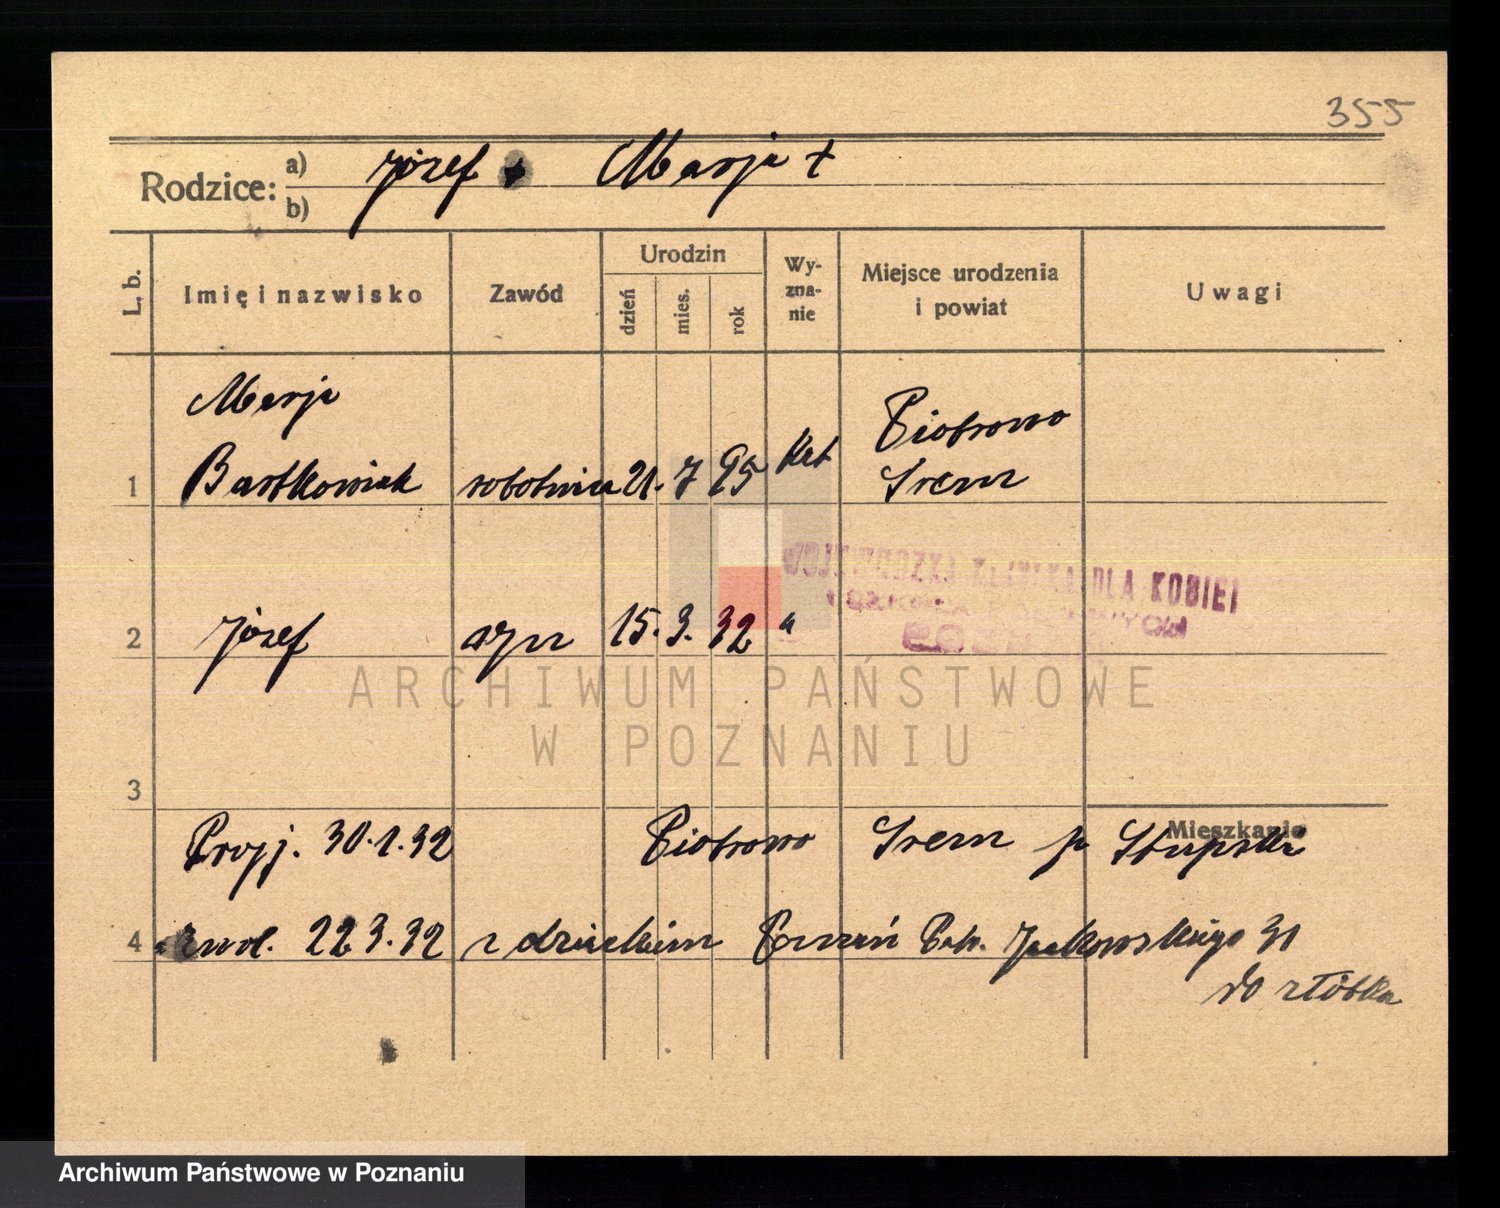 355
Rodzice: a) b) Józef + Marja +
L. b. Imię i nazwisko Zawód Urodzin dzień mies. rok Wy-zna-nie Miejsce urodzenia i powiat Uwagi
Marja Piotrowo
1 Bartkowiak robotnica 21. 7 95 kat Śrem
WOJEWÓDZKA KLINIKA DLA KOBIET
2 Józef syn 15. 3. 32 "
ARCHIWUM PAŃSTWOWE
W POZNANIU
3
Mieszkanie
Przyj. 30.1.32 Piotrowo Śrem p
4 zwol. 22 3.32 z dzieckiem Poznań Jackowskiego 31
do złóbka
Archiwum Państwowe w Poznaniu